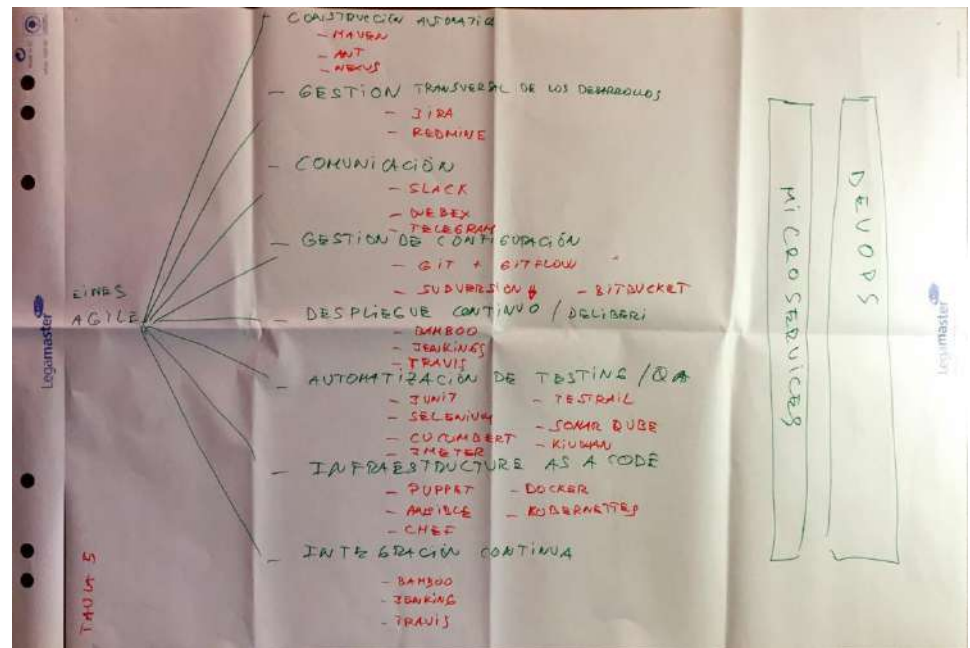 CONSTRUCCIÓN AUTOMATICA
- MAVEN
- ANT
- NEXUS
- GESTIÓN TRANSVERSAL DE LOS DESARROLLOS
- JIRA
- REDMINE
- COMUNICACIÓN
- SLACK
- WEBEX
- TELEGRAM
- GESTIÓN DE CONFIGURACIÓN
- GIT + GITFLOW
- SUDVERSION - BITBUCKET
EINES
AGILE
- DESPLIEGUE CONTINUO / DELIBERI
- BAMBOO
- JENKINGS
- TRAVIS
- AUTOMATIZACIÓN DE TESTING / QA
- JUNIT - TESTRAIL
- SELENIUM
- SONAR QUBE
- CUCUMBERT - KIUWAN
- JMETER
- INFRAESTDUCTURE AS A CODE
- PUPPET - DOCKER
- ANSIBLE - KUBERNETTES
- CHEF
- INTEGRACIÓN CONTINUA
- BAMBOO
- JENKING
- TRAVIS
MICROSERVICES
DEVOPS
TAULA 5
Legamaster
Legamaster